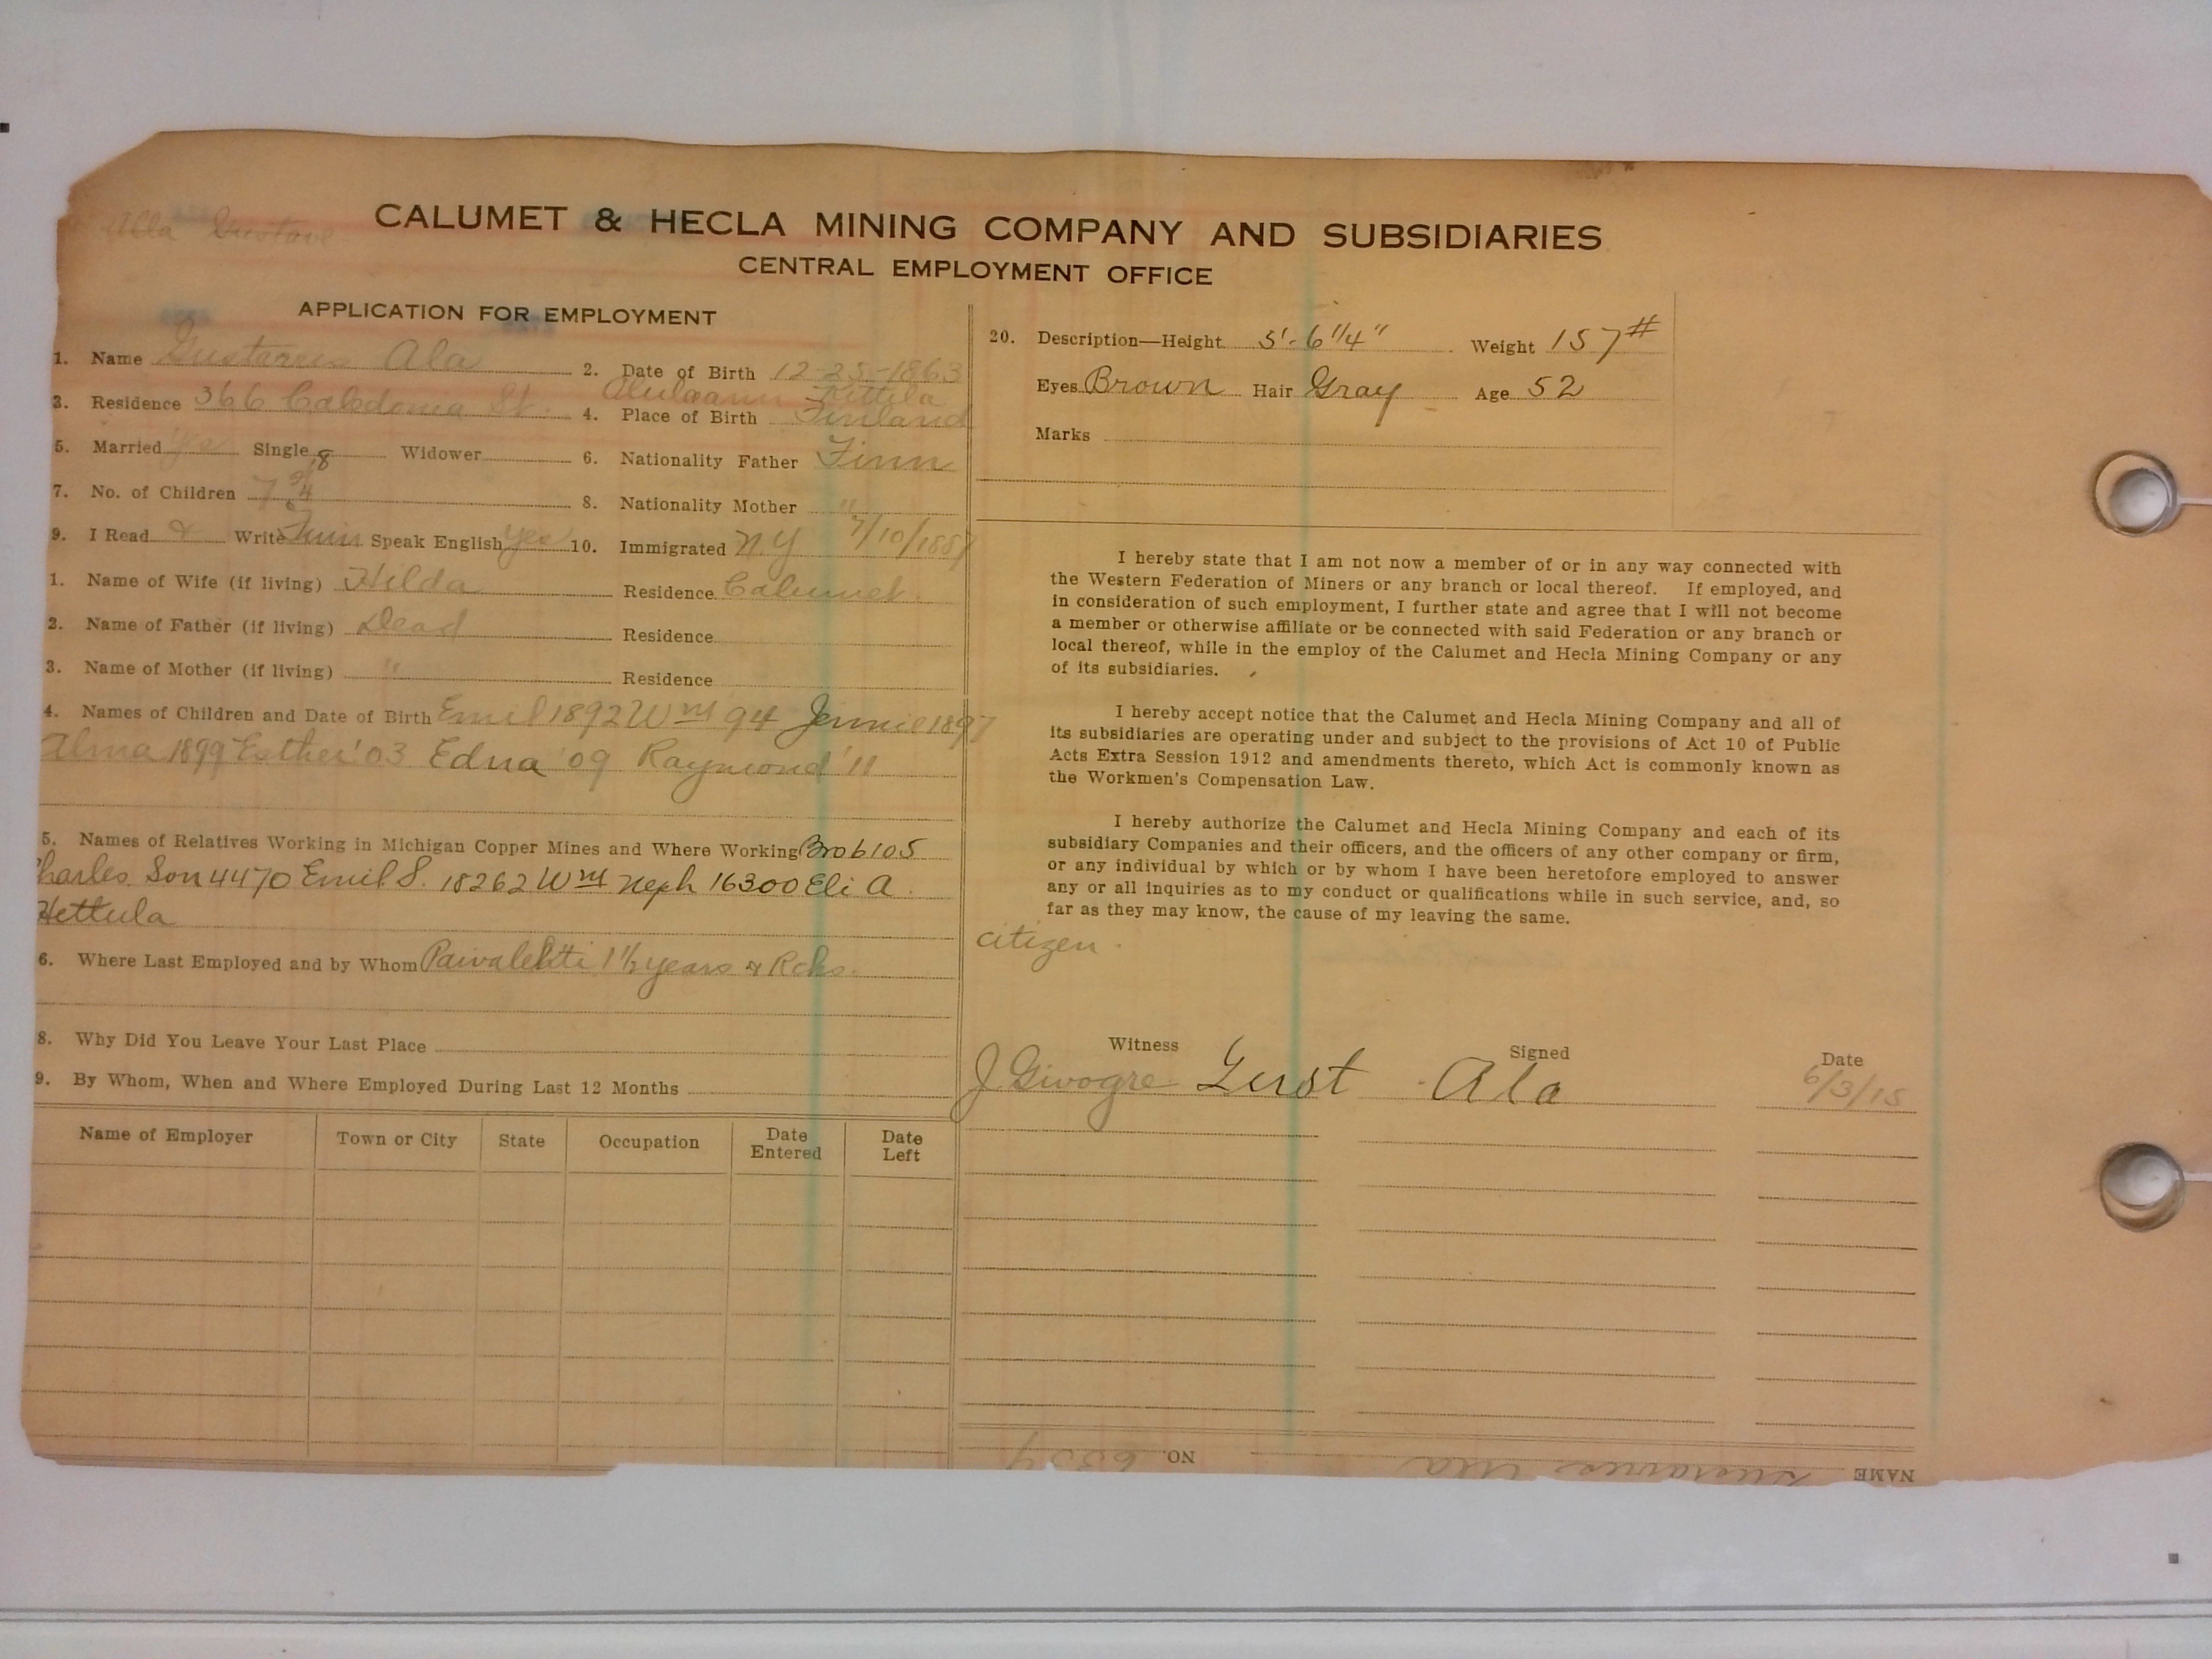 Alla Gustave
CALUMET & HECLA MINING COMPANY AND SUBSIDIARIES
CENTRAL EMPLOYMENT OFFICE
APPLICATION FOR EMPLOYMENT
1. Name Gustavus Ala 2. Date of Birth 12-25-1863
3. Residence 366 Caledonia St. 4. Place of Birth Finland
5. Married Yes Single 8 Widower
6. Nationality Father Finn
7. No. of Children 7
8. Nationality Mother "
9. I Read & Write Finn Speak English yes 10. Immigrated N.Y 7/10/1887
1. Name of Wife (if living) Hilda Residence Calumet.
2. Name of Father (if living) Dead Residence
3. Name of Mother (if living) " Residence
4. Names of Children and Date of Birth Emil 1892 Wm 94 Jennie 1897
Alma 1899 Esther '03 Edna '09 Raymond '11
5. Names of Relatives Working in Michigan Copper Mines and Where Working Bro 6105
Charles. Son 4470 Emil S. 18262 Wm Neph 16300 Eli A.
Hettula
6. Where Last Employed and by Whom Paivalehti 1 1/2 years & Rcks.
8. Why Did You Leave Your Last Place
9. By Whom, When and Where Employed During Last 12 Months
Name of Employer Town or City State Occupation Date Entered Date Left
20. Description—Height 5'-6 1/4" Weight 157#
Eyes Brown Hair Gray Age 52
Marks
I hereby state that I am not now a member of or in any way connected with
the Western Federation of Miners or any branch or local thereof. If employed, and
in consideration of such employment, I further state and agree that I will not become
a member or otherwise affiliate or be connected with said Federation or any branch or
local thereof, while in the employ of the Calumet and Hecla Mining Company or any
of its subsidiaries.
I hereby accept notice that the Calumet and Hecla Mining Company and all of
its subsidiaries are operating under and subject to the provisions of Act 10 of Public
Acts Extra Session 1912 and amendments thereto, which Act is commonly known as
the Workmen's Compensation Law.
I hereby authorize the Calumet and Hecla Mining Company and each of its
subsidiary Companies and their officers, and the officers of any other company or firm,
or any individual by which or by whom I have been heretofore employed to answer
any or all inquiries as to my conduct or qualifications while in such service, and, so
far as they may know, the cause of my leaving the same.
citizen.
Witness Signed Date
J Givogre Gust Ala 6/3/15
NAME Gustavus Ala NO.